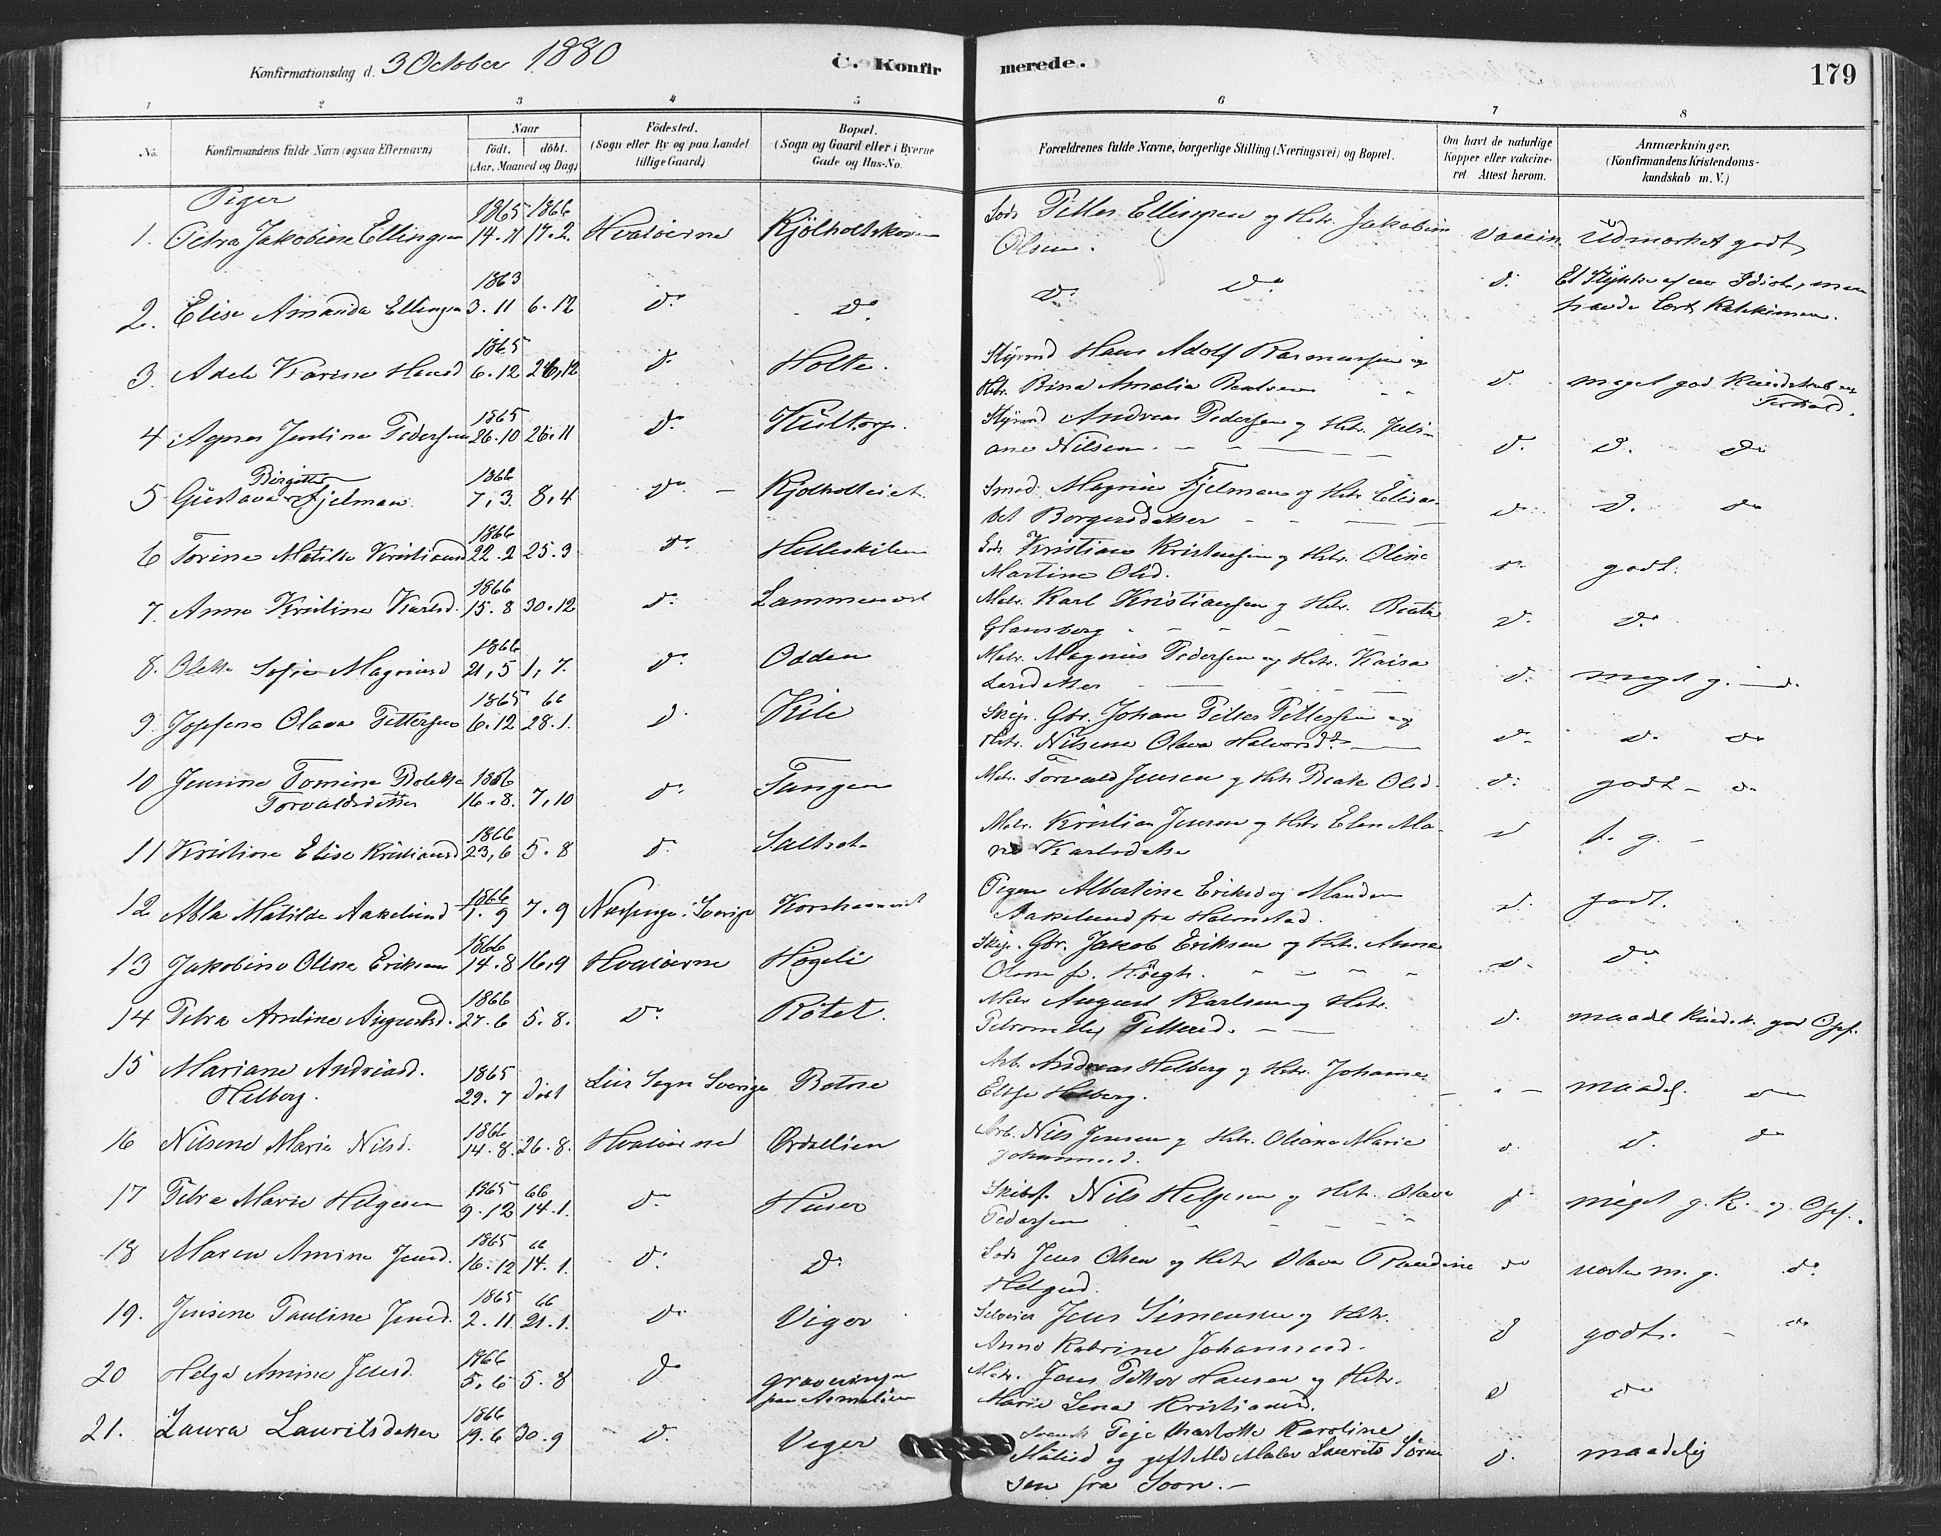 Konfirmationsdag d. 3 October 1880 C. Konfirmerede. 179
1 2 3 4 5 6 7 8
No. Konfirmandens fulde Navn (ogsaa Efternavn) Naar födt. döbt. (Aar, Maaned og Dag) Födested. (Sogn eller By og paa Landet tillige Gaard) Bopæl. (Sogn og Gaard eller i Byerne Gade og Hus-No. Forældrenes fulde Navne, borgerlige Stilling (Næringsvei) og Bopæl. Om havt de naturlige Kopper eller vakcineret. Attest herom. Anmærkninger. (Konfirmandens Kristendomskundskab m. V.)
Piger
1. Petra Jakobine Ellingsen 1865 14.11 1866 17.2. Hvaløerne Kjölholtskoven Lods Petter Ellingsen og Hstr. Jakobine
Olsen. Vaccin. Udmærket godt
2. Elise Amanda Ellingsen 1863 3.11 6.12 do do do do do Et Stykke af en Idiot, men
havde lært Katekismen.
3. Adele Karine Hansd 1865 6.12 26.12 do Holte. Styrmd Hans Adolf Rasmussen og
Hstr. Bina Amalia do meget god Kundskab og
Forhold.
4 Agnes Justine Pedersen 1865 26.10 26.11 do Kultorp. Styrmd Andreas Pedersen og Hstr. Juli-
ane Nilsen. do do do
5 Gustava Birgitte Fjelman 1866 7,3. 8,4 do Kjölholteiet. Smed Magnus Fjelman og Hstr. Elisa-
bet Borgersdatter do do do
6 Torine Matilde Kristiansd 1866 22.2 25.3 do Helleskilen Lods Kristian Kristensen og Hstr. Oline
Martine Olsd. do godt.
7. Anna Kristine Karlsd. 1866 15.8 30.12 do Matr. Karl Kristiansen og Hstr. Beata
Glansberg do do
8. Olette Sofie Magnusd 1866 21,5 1,7. do Odden Matr. Magnus Pedersen og Hstr. Kaisa
Larsdatter do meget g. do.
9. Josefine Olava Pettersen 1865 6.12 66 28.1. do Kile Skip. Gbr. Johan Petter Pettersen og
Hstr. Nilsine Olava Halvorsdr do do do
10 Jensine Tomine Bolette
Torvaldsdatter 1866 16.8. 7,10 do Tangen Matr. Torvald Jensen og Hstr Beate Olsd. do godt do
11 Kristine Elise Kristiansd 1866 23,6 5.8 do Saltrot Matr. Kristian Jensen og Hstr Elen Ma-
rie Karlsdatter do t. g.
12 Abla Matilde Aakelund 1866 1.9 7.9 i Sverige Korshavn Pigen Albertine Eriksd og Manden
Aakelund fra Halmstad. do godt.
13 Jakobine Oline Eriksen 1866 14.8 16.9 Hvaløerne Høgeli Skip. Gbr. Jakob Eriksen og Hstr. Anne
Olsen f. Höegh. do do
14 Petra Andine Augustsd. 1866 27.6 5.8. do Rötet. Matr August Karlsen og Hstr.
Petronelle Pettersd. do maadel Kundsk. god Opf.
15 Mariane Andriasd.
Helberg. 1865 29.7 döbt Sogn Sverige Botne Arb. Andreas Helberg og Hstr. Johanne
Helberg. maadel. do
16 Nilsine Marie Nilsd. 1866 14.8. 26.8. Hvaløerne Ordalien Arb. Nils Jensen og Hstr. Oliane Marie
Johannesd. do do do
17 Petra Marie Helgesen 1865 9.12 66 14.1. do Huser Skibsf. Nils Helgesen og Hstr. Olava
Pedersen do meget g. K. og Opf.
18 Maren Amine Jensd. 1865 16.12 66 14.1. do do Lods Jens Olsen og Hstr Olava Randine
Helgesd. do næsten m. g. do.
19. Jensine Pauline Jensd. 1865 2.11. 66 21.1. do Viger Selveier Jens Simensen og Hstr.
Anne Katrine Johannesd. do godt. do
20 Helga Amine Jensd. 1866 5.6 5.8 do
paa Asmaløen Matr. Jens Petter Hansen og Hstr.
Marie Lena Kristiansd. do do
21. Laura Lauritsdatter 1866 19.6 30.9 do Viger Svensk Pige Charlotte Karoline
og gift Maler Laurits Sören
sen fra Soon. do maadelig